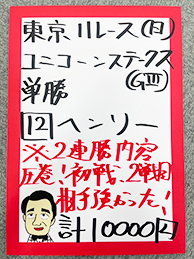 東京11レース(日)
ユニコーンステークス
(GⅢ)
単勝
12 ヘンソー
※2連勝内容
圧巻!初戦、2戦目
相手強かった!
計10000円